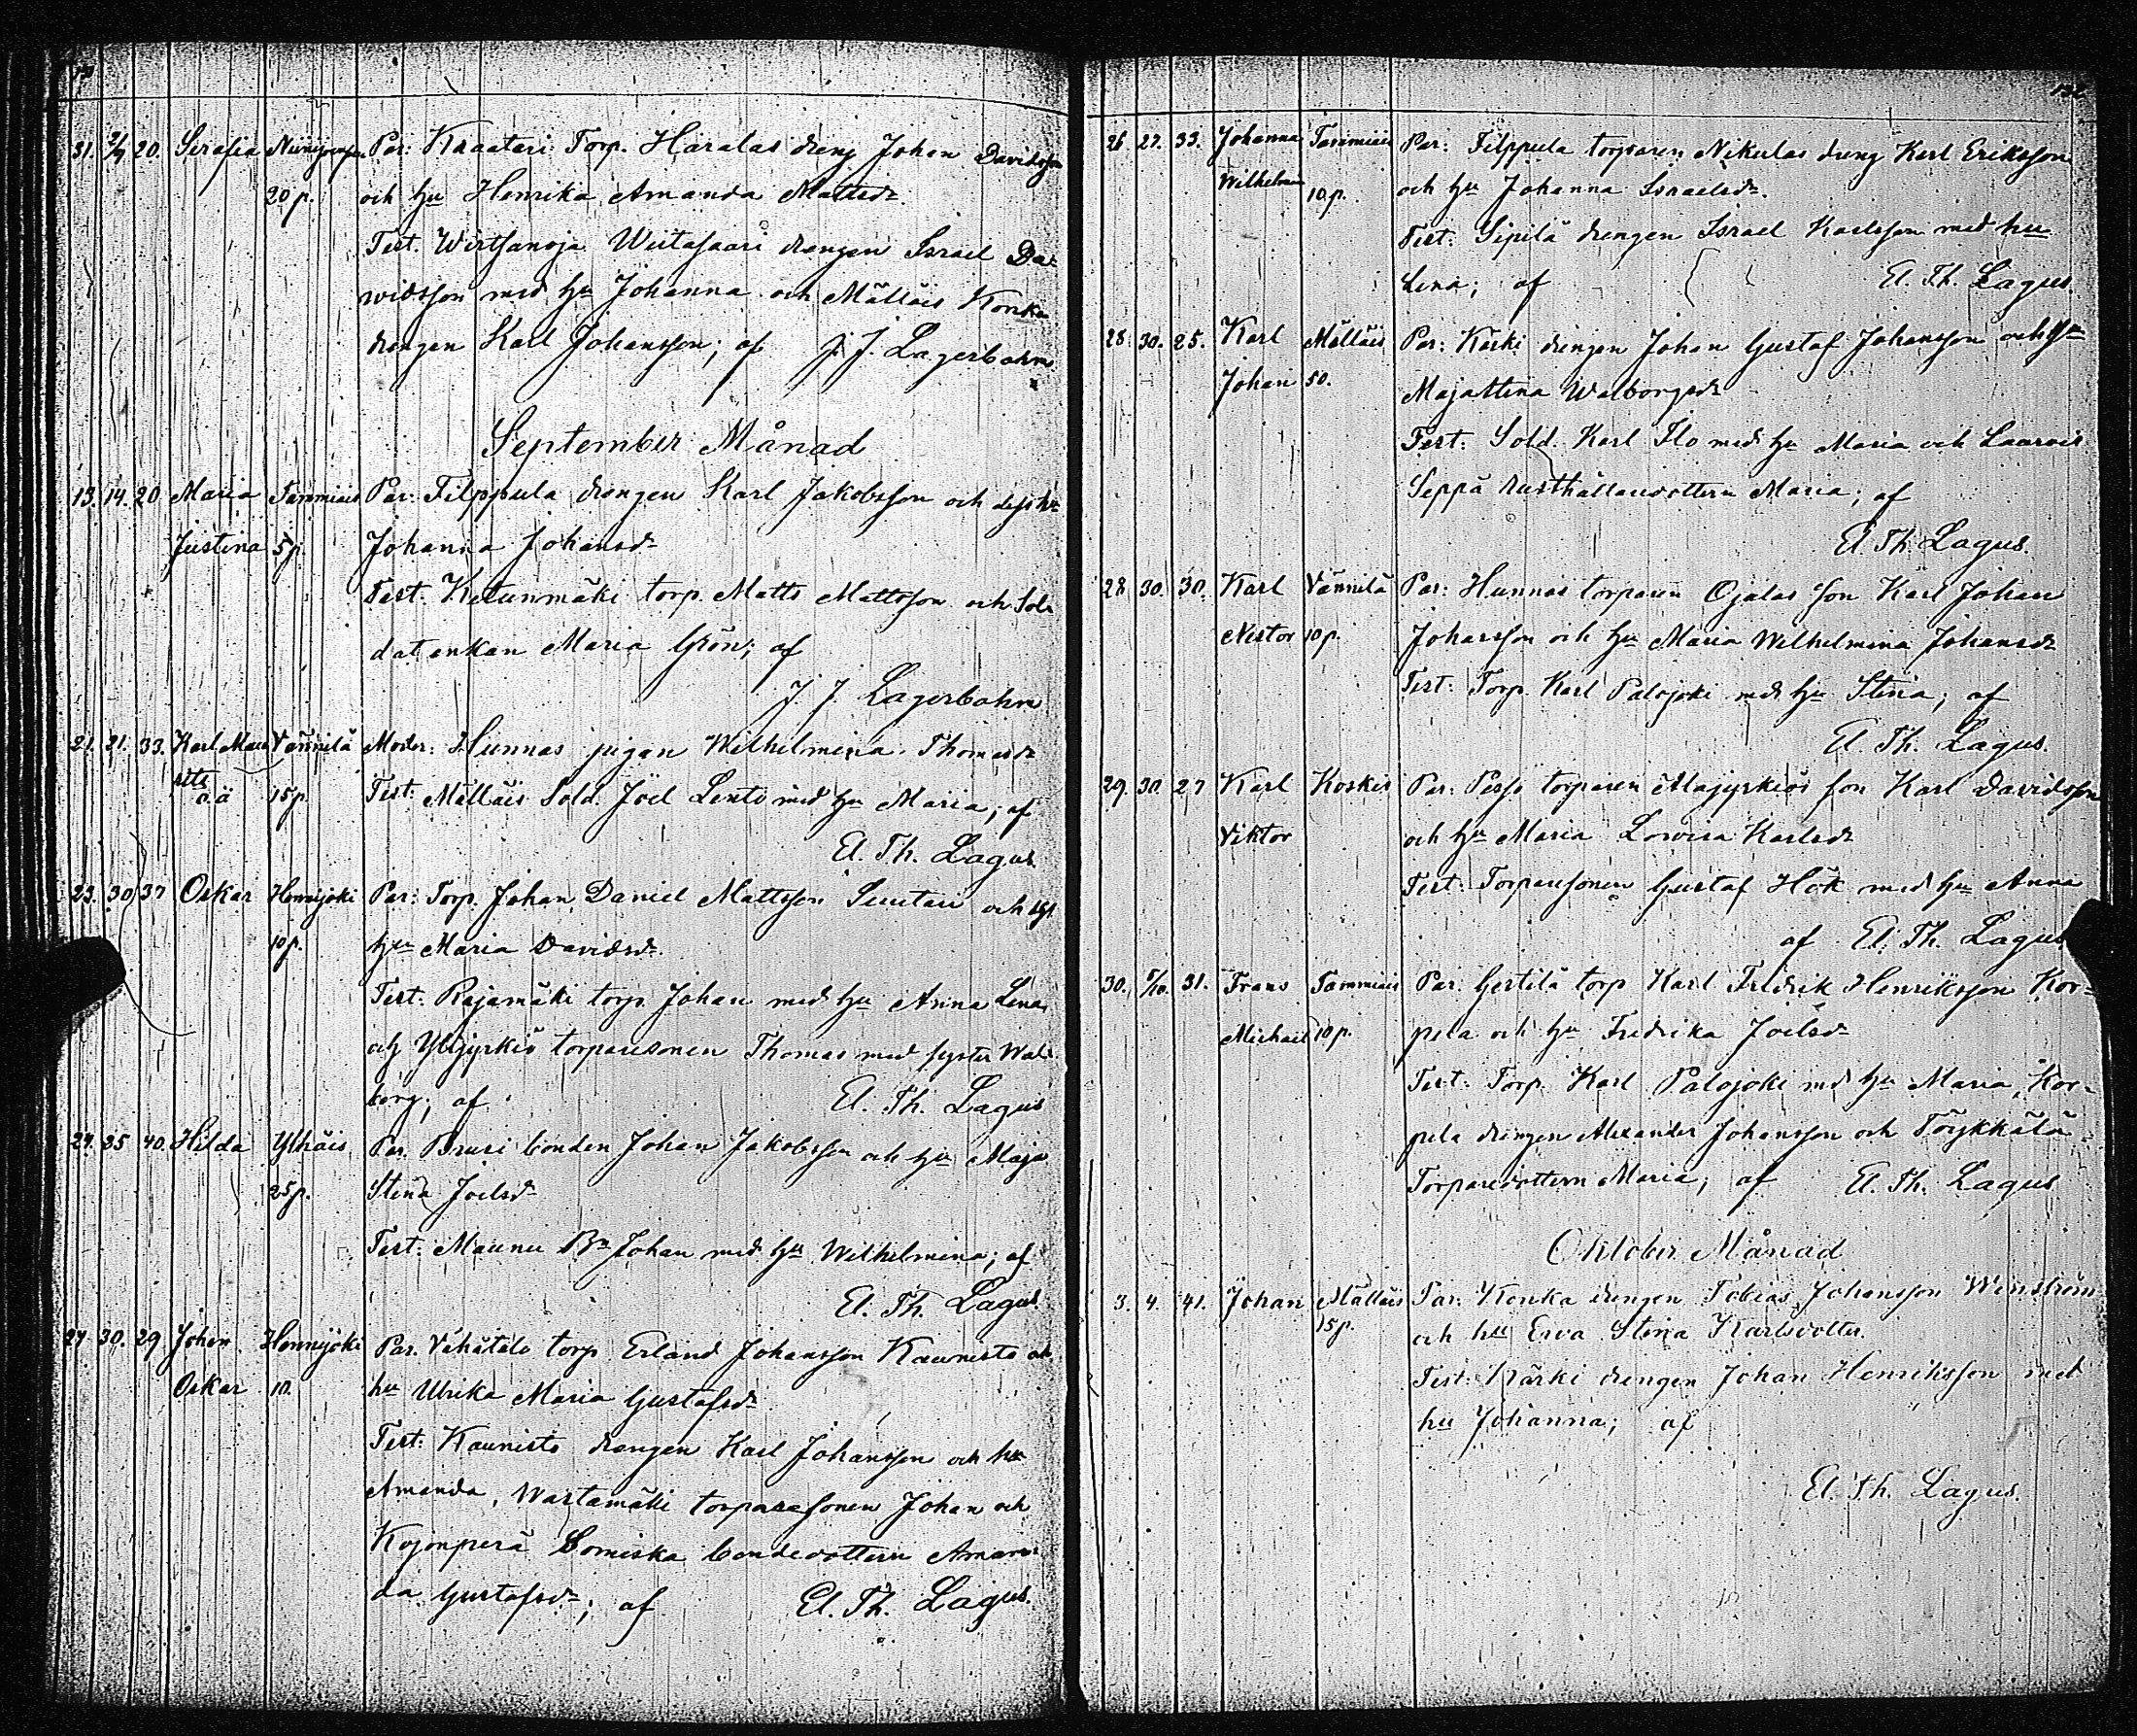 31. 2/9 20. Serafia Niinijoenpää Par: Kraatari Torp. Haralas dreng Johan Davidsson
20 p. och hu Henrika Amanda Mattsdr.
Test. Wirtsanoja Wiitasaari drengen Israel Da-
widsson med hu Johanna och Mälläis Konka
drengen Karl Johansson; af J. J. Lagerbohm
September Månad
13. 14. 20 Maria Tammiais Par: Filppula drengen Karl Jakobsson och dess hu
Justina 5 p. Johanna Johansdr
Test. Ketunmäki torp. Matts Mattsson och Sol-
datenkan Maria Grön; af
J. J. Lagerbohm
21. 21. 33. Karl Vännilä Moder: Hunnas pigan Wilhelmina Thomasdr
o.ä 15 p. Test. Mälläis Sold. Joel Lento med hu Maria; af
El. Th. Lagus
23. 30 37 Oskar Honnijoki Par: Torp. Johan Daniel Mattsson Suutari och dess
10 p. hu Maria Davidsdr.
Test: Rajamäki torp. Johan med hu Anna Lena
och Ylijyrkiö torparesonen Thomas med syster Wal-
borg; af El. Th. Lagus
24. 35 40. Hilda Ylhäis Par. Prusi bonden Johan Jakobsson och hu Maja
25 p. Stina Joelsdr
Test: Maunu Bn Johan med hu Wilhelmina; af
El. Th. Lagus
24. 30. 29 Johan Honnijoki Par. Vähätalo torp Erland Johansson Kaunisto och
Oskar 10. hu Ulrika Maria Gustafsdr
Test: Kaunisto drengen Karl Johansson och hu
Amanda, Wartamäki torparesonen Johan och
Kojonperä Lomiska bondedottern Aman-
da Gustafsdr; af El. Th. Lagus.
26 27. 33. Johanna Tammiais Par: Filppula torparen Nikulas dreng Karl Eriksson
Wilhelmina 10 p. och hu Johanna Israelsdr.
Test: Sipilä drengen Israel Karlsson med hu
Lena; af El. Th. Lagus.
28. 30. 25. Karl Mälläis Par: Kärki drengen Johan Gustaf Johansson och hu
Johan 50. Majastina Walborgsdr
Test: Sold. Karl Flo med hu Maria och
Seppä rusthållaredottern Maria; af
El Th. Lagus.
28 30. 30. Karl Vännilä Par: Hunnas torparen Ojalas son Karl Johan
Nestor 10 p. Johansson och hu Maria Wilhelmina Johansdr
Test: Torp. Karl Palojoki med hu Stina; af
El. Th. Lagus.
29. 30. 27 Karl Koskis Par: Pesso torparen Alajyrkiös son Karl Davidsson
Viktor och hu Maria Lovisa Karlsdr
Test: Torparesonen Gustaf Hök med hu Anna
af El. Th. Lagus
30. 5/10. 31. Frans Tammiais Par. Gertilä torp Karl Fredrik Henriksson Kor-
Michael 10 p. pela och hu Fredrika Joelsdr
Test: Torp. Karl Palojoki med hu Maria, Kor-
pela drengen Alexander Johansson och Töykkälä
Torparedottern Maria; af El. Th. Lagus
Oktober Månad
3. 4. 41. Johan Mälläis Par: Konka drengen Tobias Johansson Wenström
15 p. och hu Eva Stina Karlsdotter.
Test: Kärki drengen Johan Henriksson med
hu Johanna; af
El. Th. Lagus.